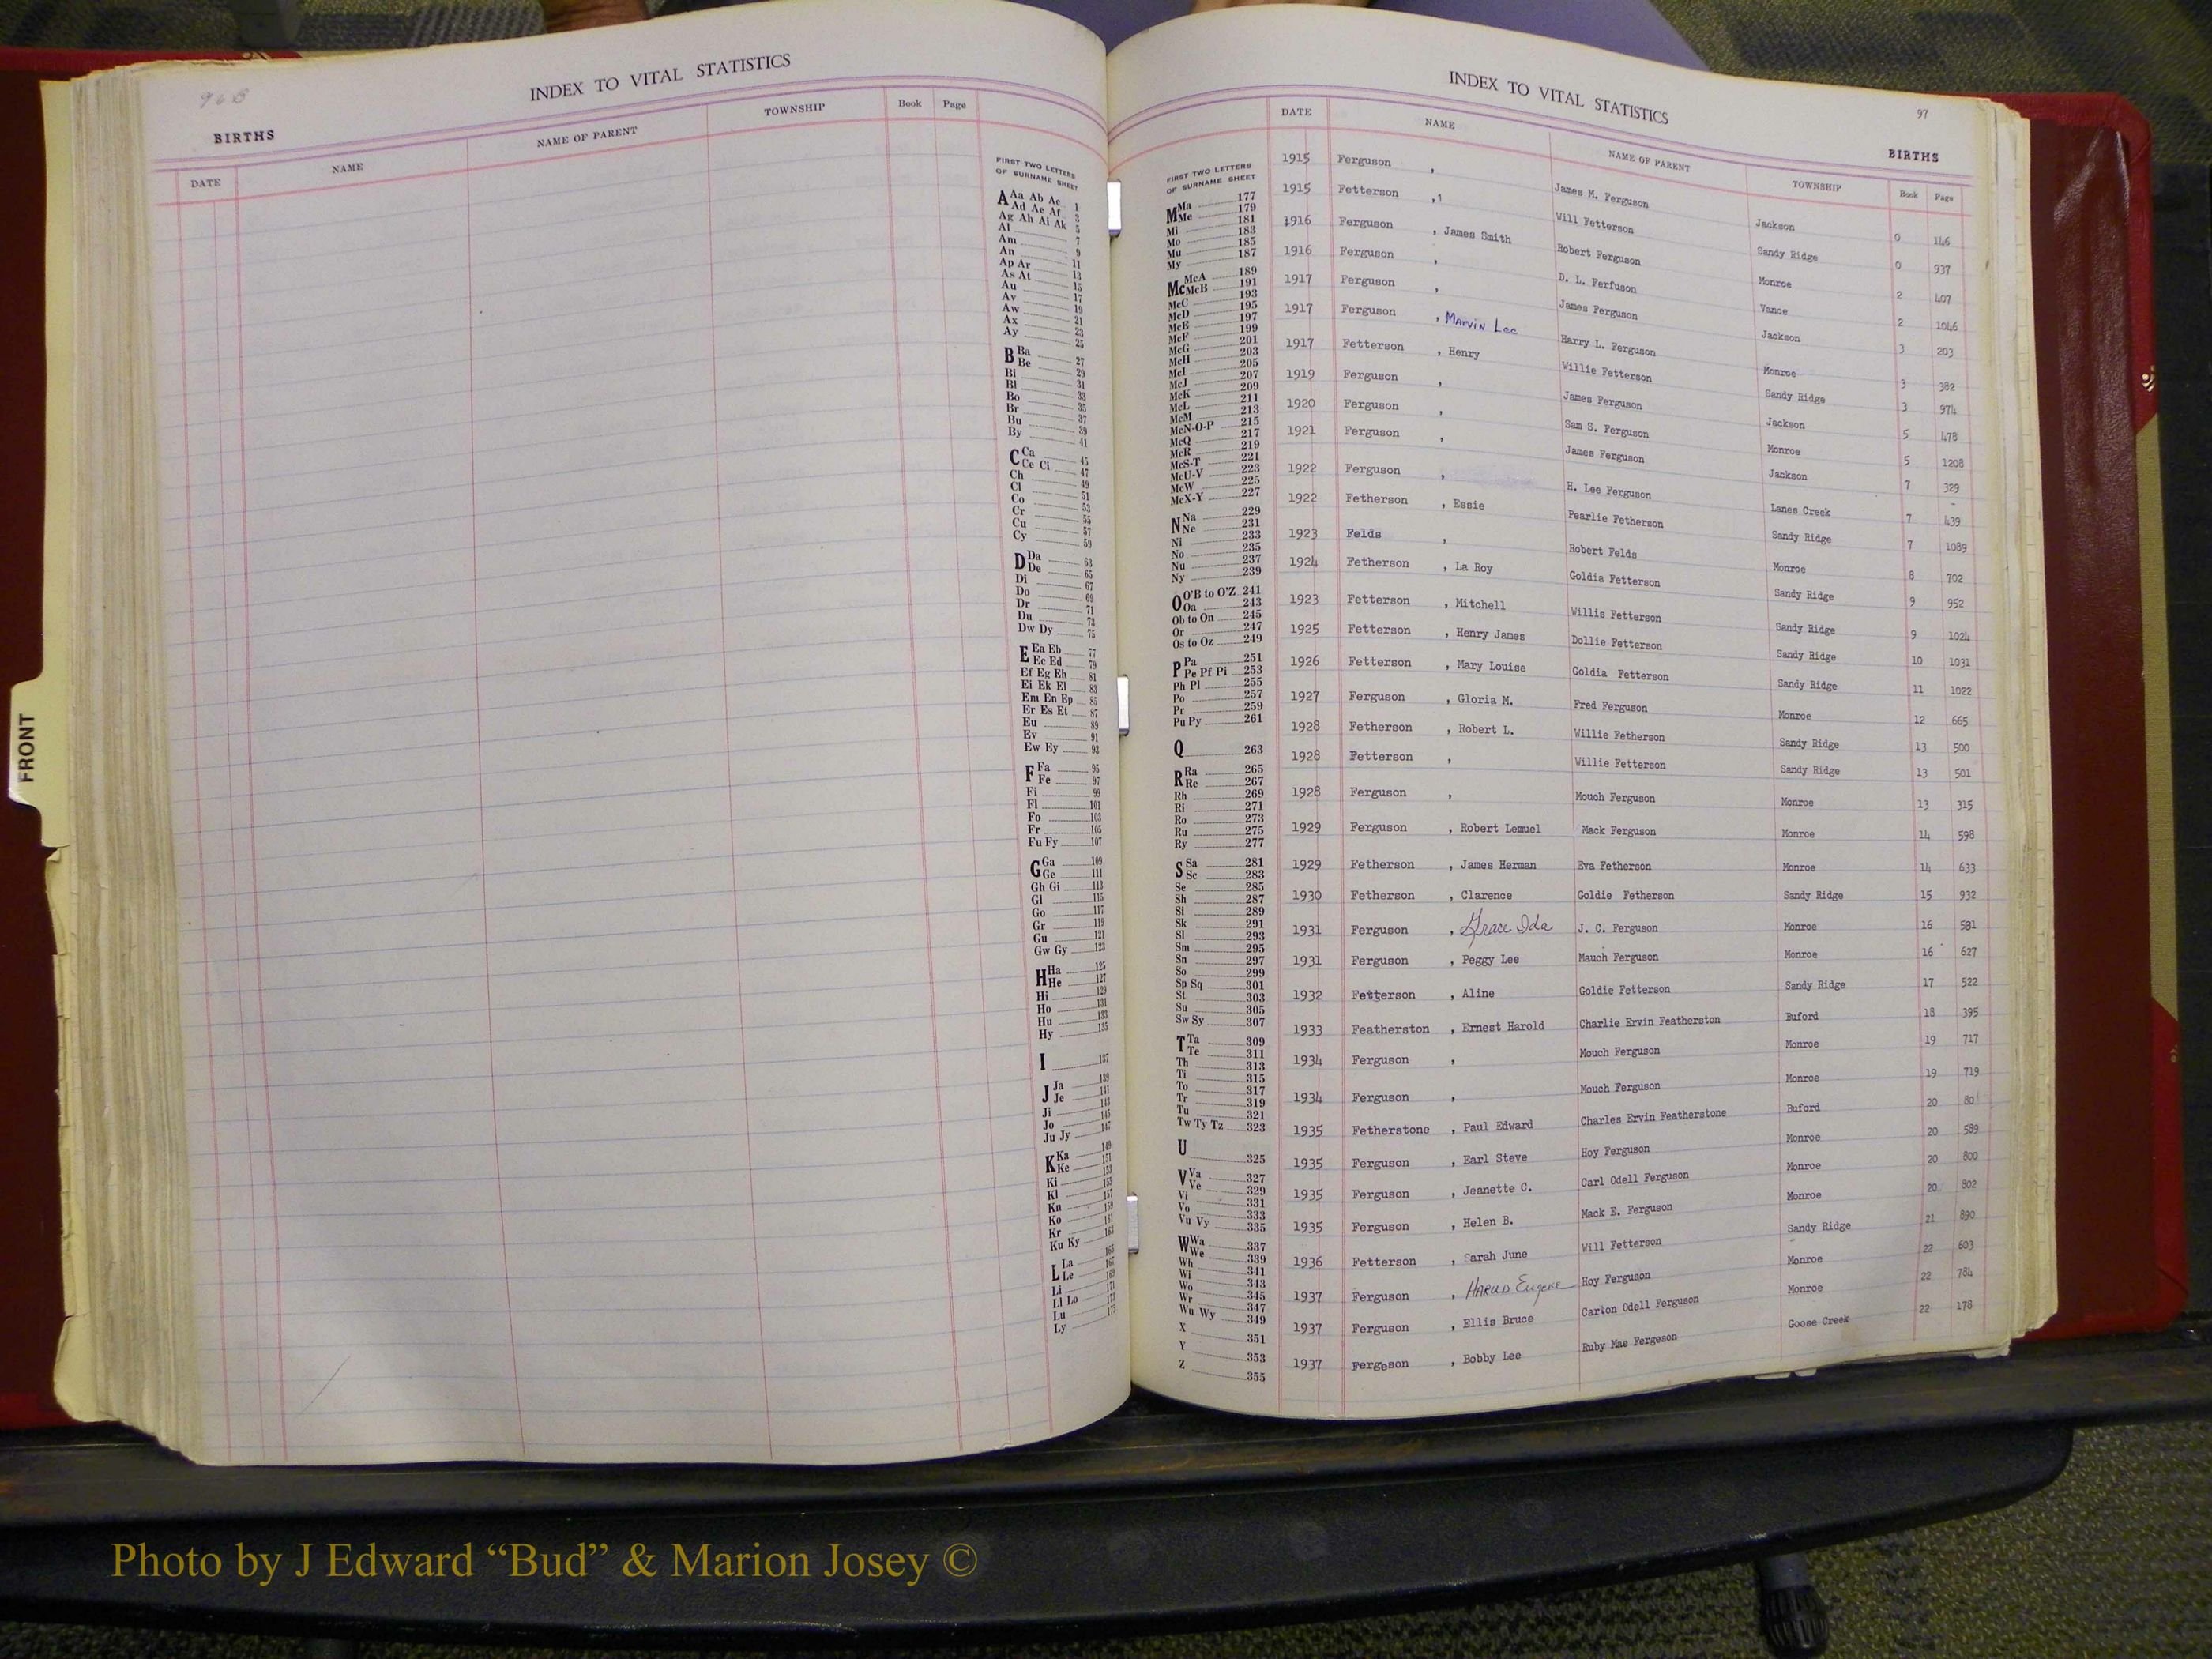 96B
INDEX TO VITAL STATISTICS
BIRTHS
DATE NAME NAME OF PARENT TOWNSHIP Book Page
FIRST TWO LETTERS
OF SURNAME SHEET
A Aa Ab Ac 1
Ad Ae Af 3
Ag Ah Ai Ak 5
Al 7
Am 9
An 11
Ap Ar 13
As At 15
Au 17
Av 19
Aw 21
Ax 23
Ay 25
B Ba 27
Be 29
Bi 31
Bl 33
Bo 35
Br 37
Bu 39
By 41
C Ca 45
Ce Ci 47
Ch 49
Cl 51
Co 53
Cr 55
Cu 57
Cy 59
D Da 63
De 65
Di 67
Do 69
Dr 71
Du 73
Dw Dy 75
E Ea Eb 77
Ec Ed 79
Ef Eg Eh 81
Ei Ek El 83
Em En Ep 85
Er Es Et 87
Eu 89
Ev 91
Ew Ey 93
F Fa 95
Fe 97
Fi 99
Fl 101
Fo 103
Fr 105
Fu Fy 107
G Ga 109
Ge 111
Gh Gi 113
Gl 115
Go 117
Gr 119
Gu 121
Gw Gy 123
H Ha 125
He 127
Hi 129
Ho 131
Hu 133
Hy 135
I 137
J Ja 139
Je 141
Ji 143
Jo 145
Ju Jy 147
K Ka 149
Ke 151
Ki 153
Kl 155
Kn 157
Ko 159
Kr 161
Ku Ky 163
L La 165
Le 167
Li 169
Ll Lo 171
Lu 173
Ly 175
INDEX TO VITAL STATISTICS
97
BIRTHS
DATE NAME NAME OF PARENT TOWNSHIP Book Page
FIRST TWO LETTERS
OF SURNAME SHEET
M Ma 177
Me 179
Mi 181
Mo 183
Mu 185
My 187
Mc McA 189
McB 191
McC 193
McD 195
McE 197
McF 199
McG 201
McH 203
McI 205
McJ 207
McK 209
McL 211
McM 213
McN-O-P 215
McQ 217
McR 219
McS-T 221
McU-V 223
McW 225
McX-Y 227
N Na 229
Ne 231
Ni 233
No 235
Nu 237
Ny 239
O O'B to O'Z 241
Oa 243
Ob to On 245
Or 247
Os to Oz 249
P Pa 251
Pe Pf Pi 253
Ph Pl 255
Po 257
Pr 259
Pu Py 261
Q 263
R Ra 265
Re 267
Rh 269
Ri 271
Ro 273
Ru 275
Ry 277
S Sa 281
Sc 283
Se 285
Sh 287
Si 289
Sk 291
Sl 293
Sm 295
Sn 297
So 299
Sp Sq 301
St 303
Su 305
Sw Sy 307
T Ta 309
Te 311
Th 313
Ti 315
To 317
Tr 319
Tu 321
Tw Ty Tz 323
U 325
V Va 327
Ve 329
Vi 331
Vo 333
Vu Vy 335
W Wa 337
We 339
Wh 341
Wi 343
Wo 345
Wr 347
Wu Wy 349
X 351
Y 353
Z 355
1915 Ferguson , James M. Ferguson Jackson 0 146
1915 Fetterson ,1 Will Fetterson Sandy Ridge 0 937
1916 Ferguson , James Smith Robert Ferguson Monroe 2 407
1916 Ferguson , D. L. Ferfuson Vance 2 1046
1917 Ferguson , James Ferguson Jackson 3 203
1917 Ferguson , Marvin Lee Harry L. Ferguson Monroe 3 382
1917 Fetterson , Henry Willie Fetterson Sandy Ridge 3 974
1919 Ferguson , James Ferguson Jackson 5 478
1920 Ferguson , Sam S. Ferguson Monroe 5 1208
1921 Ferguson , James Ferguson Jackson 7 329
1922 Ferguson , H. Lee Ferguson Lanes Creek 7 439
1922 Fetherson , Essie Pearlie Fetherson Sandy Ridge 7 1089
1923 Felds , Robert Felds Monroe 8 702
1924 Fetherson , La Roy Goldia Fetterson Sandy Ridge 9 952
1923 Fetterson , Mitchell Willis Fetterson Sandy Ridge 9 1024
1925 Fetterson , Henry James Dollie Fetterson Sandy Ridge 10 1031
1926 Fetterson , Mary Louise Goldia Fetterson Sandy Ridge 11 1022
1927 Ferguson , Gloria M. Fred Ferguson Monroe 12 665
1928 Fetherson , Robert L. Willie Fetherson Sandy Ridge 13 500
1928 Fetterson , Willie Fetterson Sandy Ridge 13 501
1928 Ferguson , Mouch Ferguson Monroe 13 315
1929 Ferguson , Robert Lemuel Mack Ferguson Monroe 14 598
1929 Fetherson , James Herman Eva Fetherson Monroe 14 633
1930 Fetherson , Clarence Goldie Fetherson Sandy Ridge 15 932
1931 Ferguson , Grace Ida J. C. Ferguson Monroe 16 581
1931 Ferguson , Peggy Lee Mauch Ferguson Monroe 16 627
1932 Fetterson , Aline Goldie Fetterson Sandy Ridge 17 522
1933 Featherston , Ernest Harold Charlie Ervin Featherston Buford 18 395
1934 Ferguson , Mouch Ferguson Monroe 19 717
1934 Ferguson , Mouch Ferguson Monroe 19 719
1935 Fetherstone , Paul Edward Charles Ervin Featherstone Buford 20 80
1935 Ferguson , Earl Steve Hoy Ferguson Monroe 20 589
1935 Ferguson , Jeanette C. Carl Odell Ferguson Monroe 20 800
1935 Ferguson , Helen B. Mack E. Ferguson Monroe 20 802
1936 Fetterson , Sarah June Will Fetterson Sandy Ridge 21 890
1937 Ferguson , Harold Eugene Hoy Ferguson Monroe 22 603
1937 Ferguson , Ellis Bruce Carlon Odell Ferguson Monroe 22 784
1937 Fergeson , Bobby Lee Ruby Mae Fergeson Goose Creek 22 178
FRONT
Photo by J Edward “Bud” & Marion Josey ©